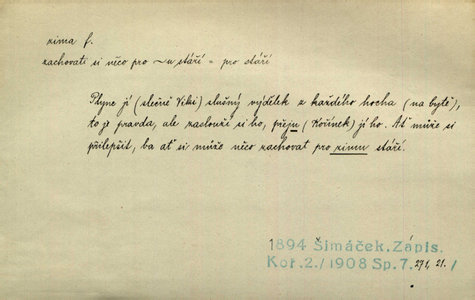 zima f.
zachovati si něco pro ~u stáří = pro stáří
Plyne jí (slečně Viki) slušný výdělek z každého hocha (na bytě),
to je pravda, ale zaslouží si ho, přeju (Kořínek) jí ho. Ať může si
přilepšit, ba ať si může něco zachovat pro zimu stáří.
1894 Šimáček. Zápis.
Koř. 2./1908 Sp. 7. 271, 21./